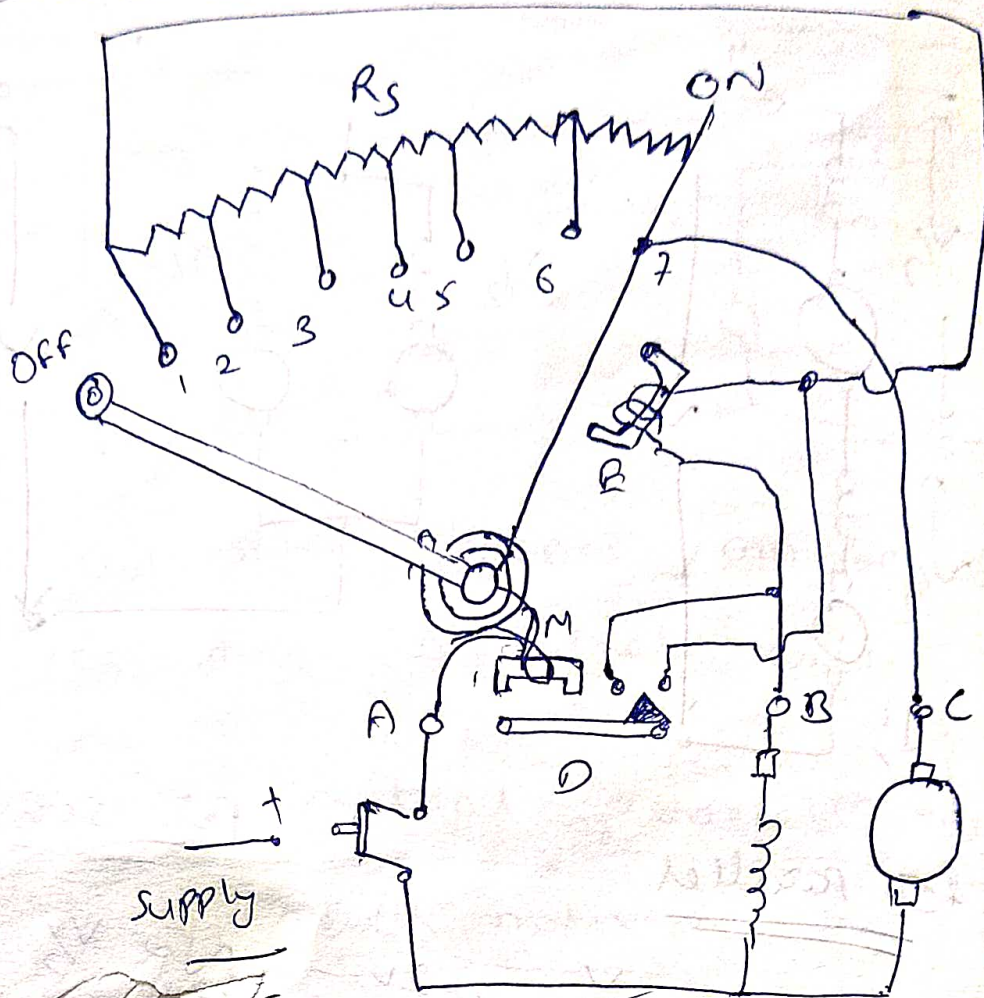 Rs
ON
Off
1
2
3
4
5
6
7
E
M
A
B
C
D
+
Supply